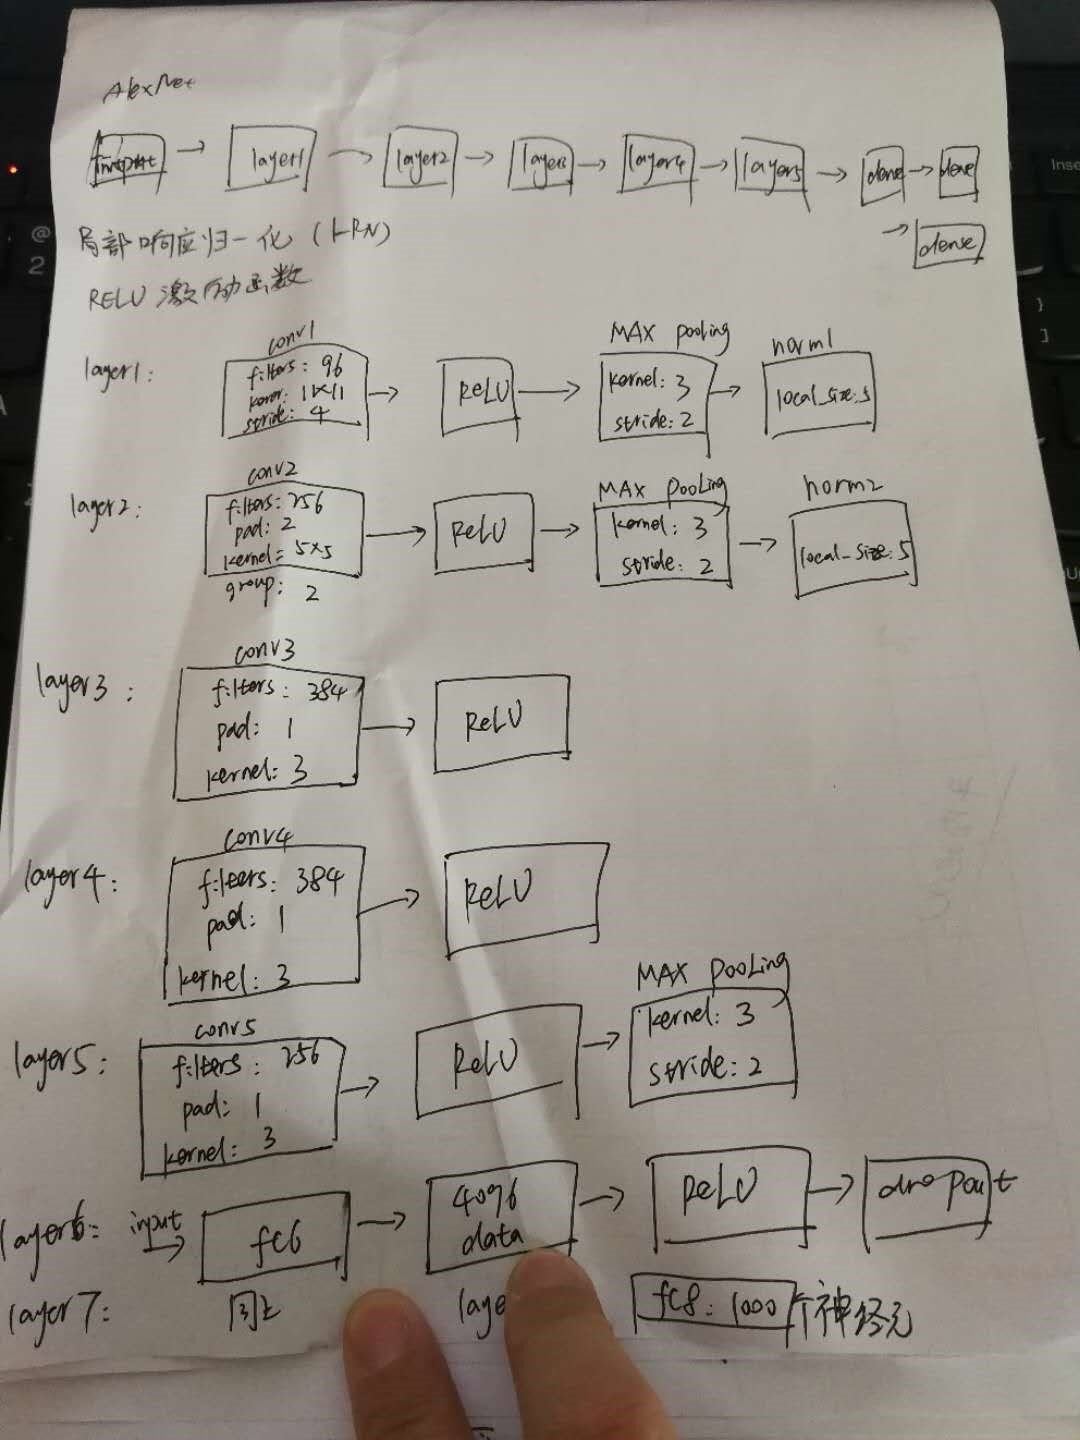 AlexNet
layer1 layer2 layer3 layer4 layer5 dense dense
dense
局部响应归一化 (LRN)
RELU 激励函数
conv1 MAX pooling norm1
layer1: filters: 96 ReLU kernel: 3 local_size: 5
11×11 stride: 2
stride: 4
conv2 MAX pooling norm2
layer2: filters: 256 ReLU kernel: 3 local_size: 5
pad: 2 stride: 2
kernel= 5×5
group: 2
conv3
layer3: filters: 384 ReLU
pad: 1
kernel: 3
conv4
layer4: filters: 384 ReLU
pad: 1
kernel: 3
conv5 MAX pooling
layer5: filters: 256 ReLU kernel: 3
pad: 1 stride: 2
kernel: 3
layer6: input fc6 4096 data ReLU dropout
layer7: 同上 fc8: 1000个神经元